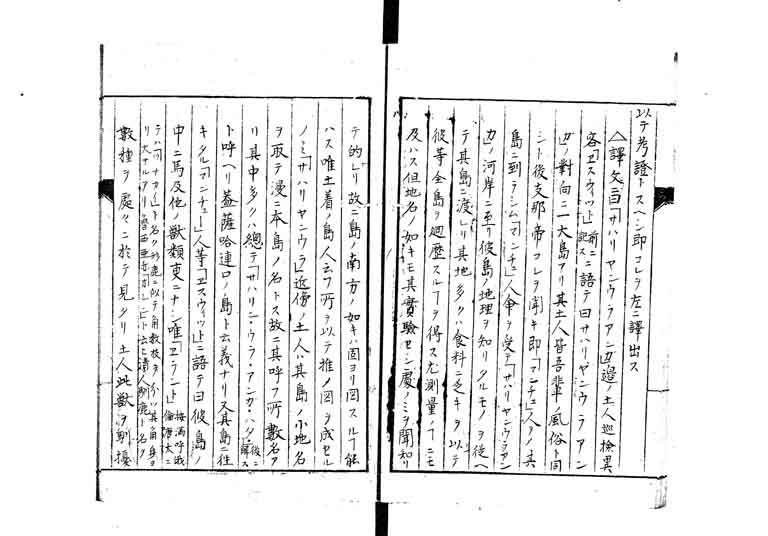 以テ考證トスヘシ即コレヲ左ニ譯出ス
△譯文ニ曰「サハリヤンウラアン」辺ノ土人巡檢異
客「ヱスウィット」前ニ記スニ語テ曰サハリヤンウラアン
ノ對向ニ一大島アリ其土人皆吾輩ノ風俗ト同
シト後支那帝コレヲ聞キ即「マンチュ」人ヲノ其
島ニ到ラシム「マンチュ」人命ヲ受テ「サハリヤンウラアン
」ノ河岸ニ至リ彼島ノ地理ヲ知リタルモノヲ從ヘ
テ其島ニ渡レリ其地多クハ食料ニ乏キヲ以テ
彼等全島ヲ廻歴スルヿヲ得ス尤測量ノヿニモ
及ハス但地名ノ如キモ其實驗セシ處ノミヲ聞知リ
テ的レリ故ニ島ノ南方ノ如キハ固ヨリ図スルヿ能
ハス唯土着ノ島人云フ所ヲ以テ推ノ図ヲ成セル
ノミ「サハリヤンウラ」近傍ノ土人ハ其島ノ小地名
ヲ取テ漫ニ本島ノ名トス故ニ其呼フ所數名ア
リ其中多クハ總テ「サハリン・ウラ・アンガ・ハタ」後ニ譯ス
ト呼ヘリ蓋薩哈連口ノ島ト云義ナリ又其島ニ往
キタル「マンチュ」人等「ヱスウィット」ニ語テ曰彼島ノ
中ニ馬及他ノ獸類更ニナシ唯「ヱラント」
數種ヲ處々ニ於テ見タリ土人此獸ヲ馴擾